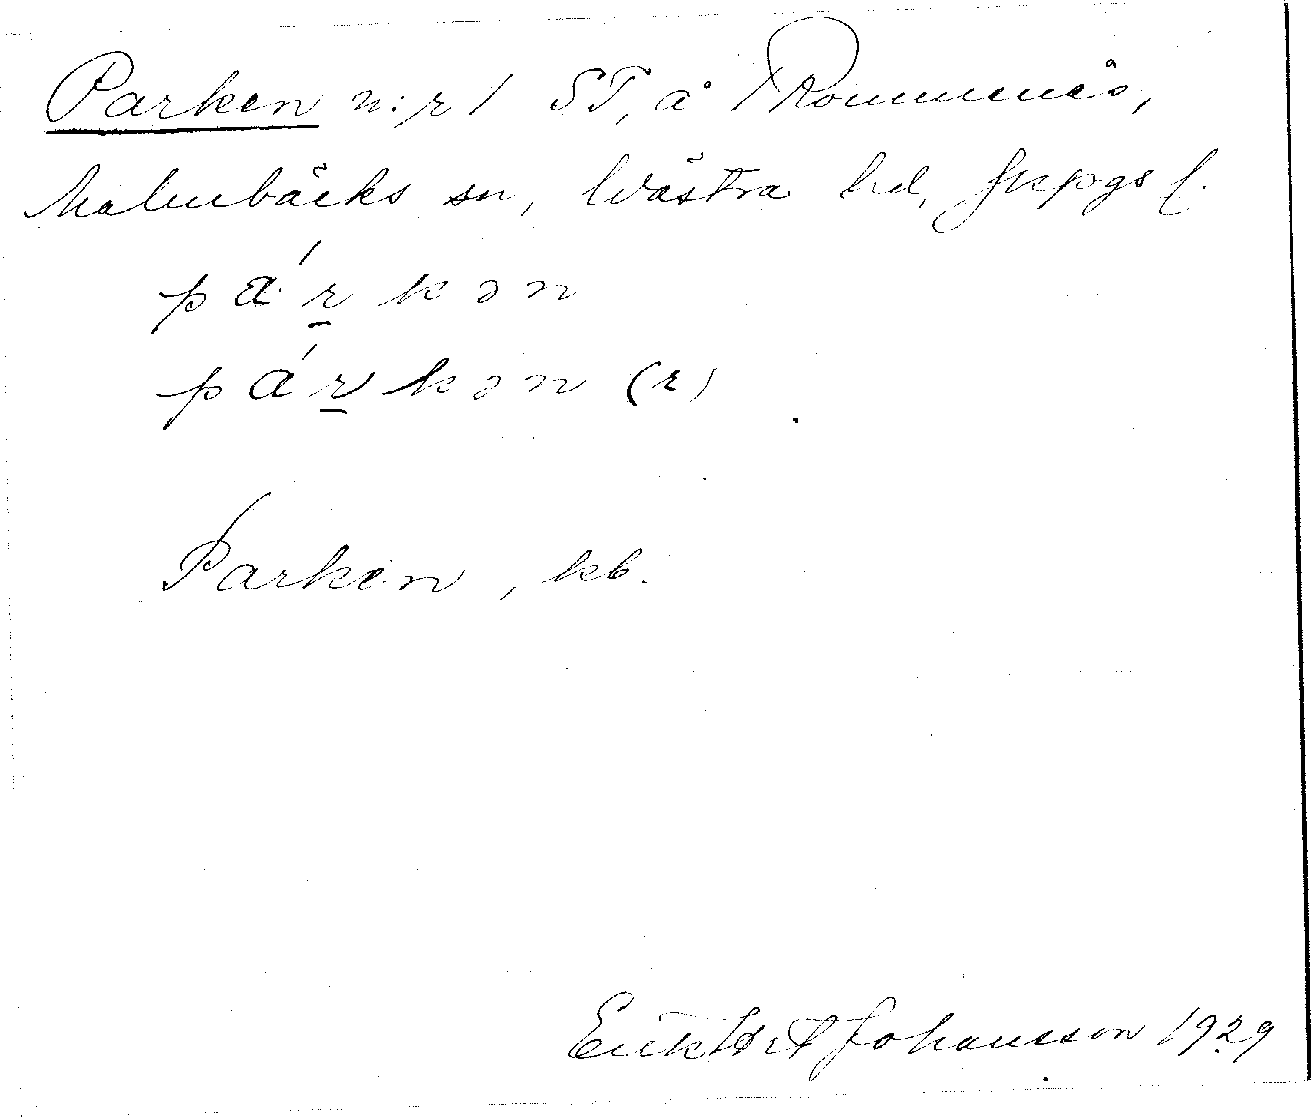 Parken n:r 1 ST, å Rommenås,
Malmbäcks sn, Västra hd, Jkpgs l.
pá̄r̲kən
pár̲kən (r)
Parken, kb.
Johansson 1929